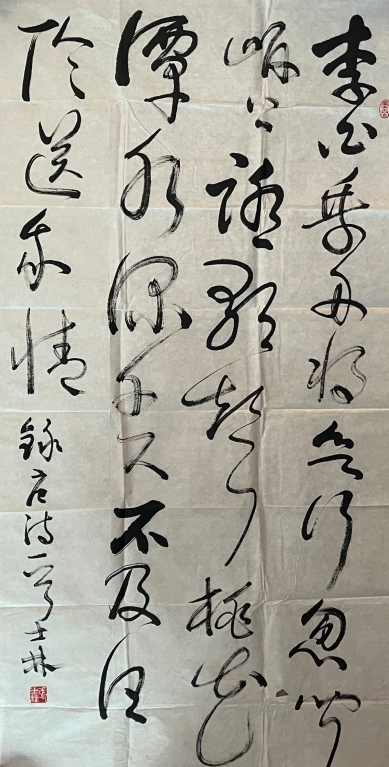 李白乘舟将欲行忽闻
岸上踏歌声桃花
潭水深千尺不及汪
伦送我情 録唐诗一首 士林